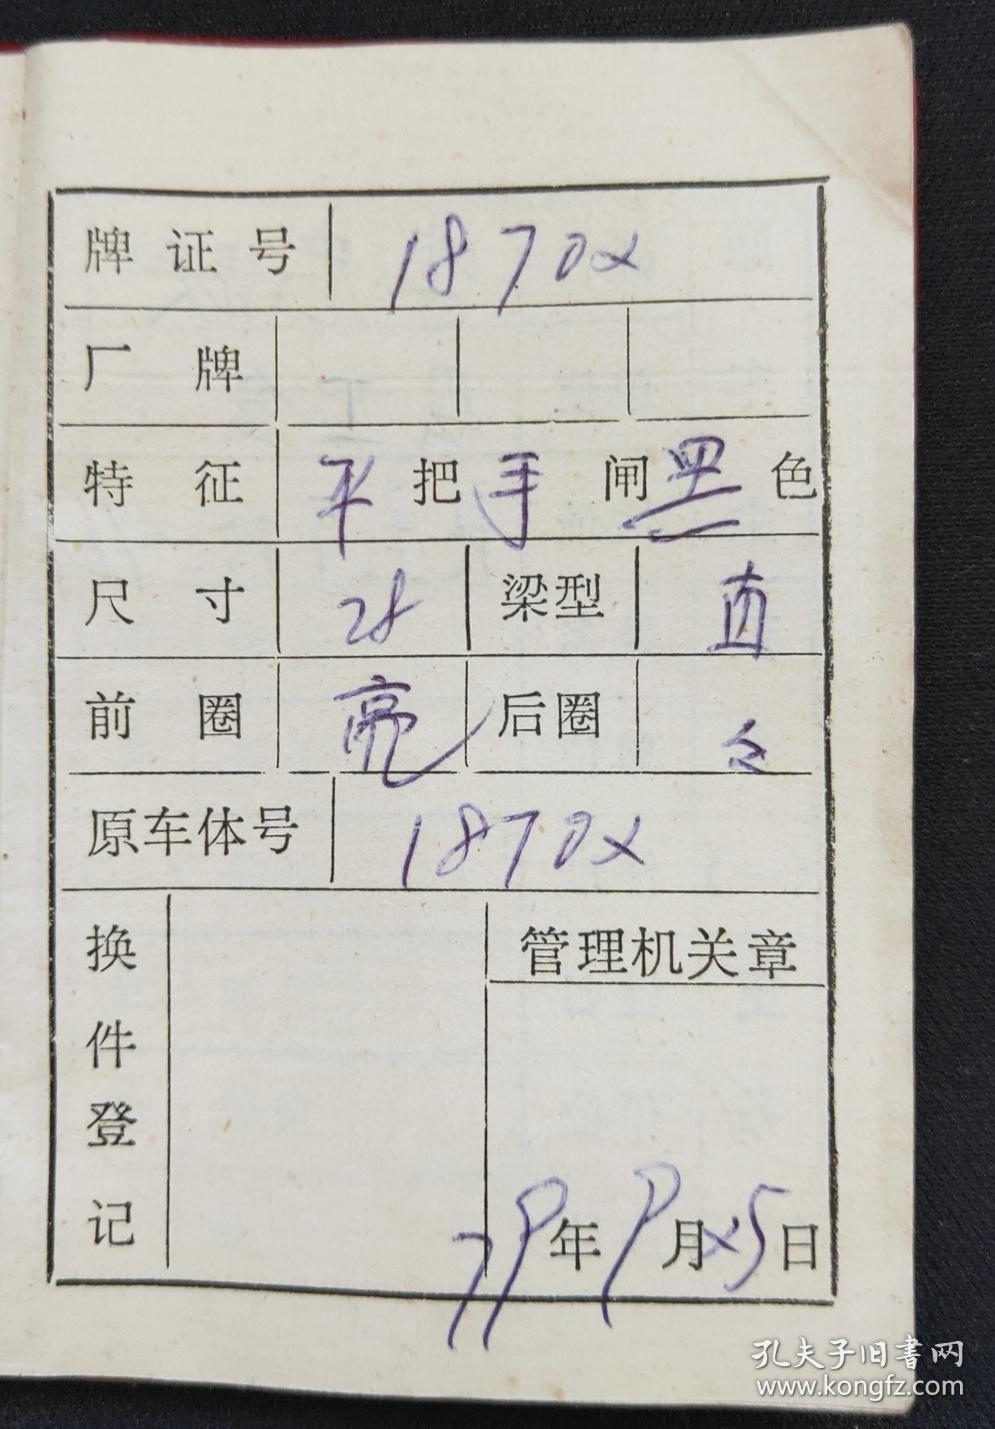 牌证号 18702
厂牌
特征 平把手闸黑色
尺寸 28 梁型 直
前圈 亮 后圈 々
原车体号 18702
换件登记 管理机关章
79年9月25日
孔夫子旧书网
www.kongfz.com